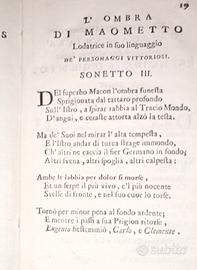 19
L' OMBRA
DI MAOMETTO
Lodatrice in suo linguaggio
DE' PERSONAGGI VITTORIOSI.
SONETTO III.
DEl superbo Macon l'ombra funesta
Sprigionata dal tartaro profondo
Sull' Istro, a spirar rabbia al Tracio Mondo,
D'angui, e ceraste attorta alzò la testa.
Ma de' Suoi nel mirar l' alta tempesta,
E l'Istro andar di turca strage immondo,
Ch' altri ne caccia il fier Germano in fondo;
Altri svena, altri spoglia, altri calpesta;
Ambe le labbra per dolor si morse,
Et un serpe il più vivo, e 'l più nocente
Svelse di fronte, e nel suo cuor lo torse.
Tornò per minor pena al fondo ardente;
E mentre i passi a sua Prigion ritorse,
Eugenio bestemmiò, Carlo, e Clemente.
subito